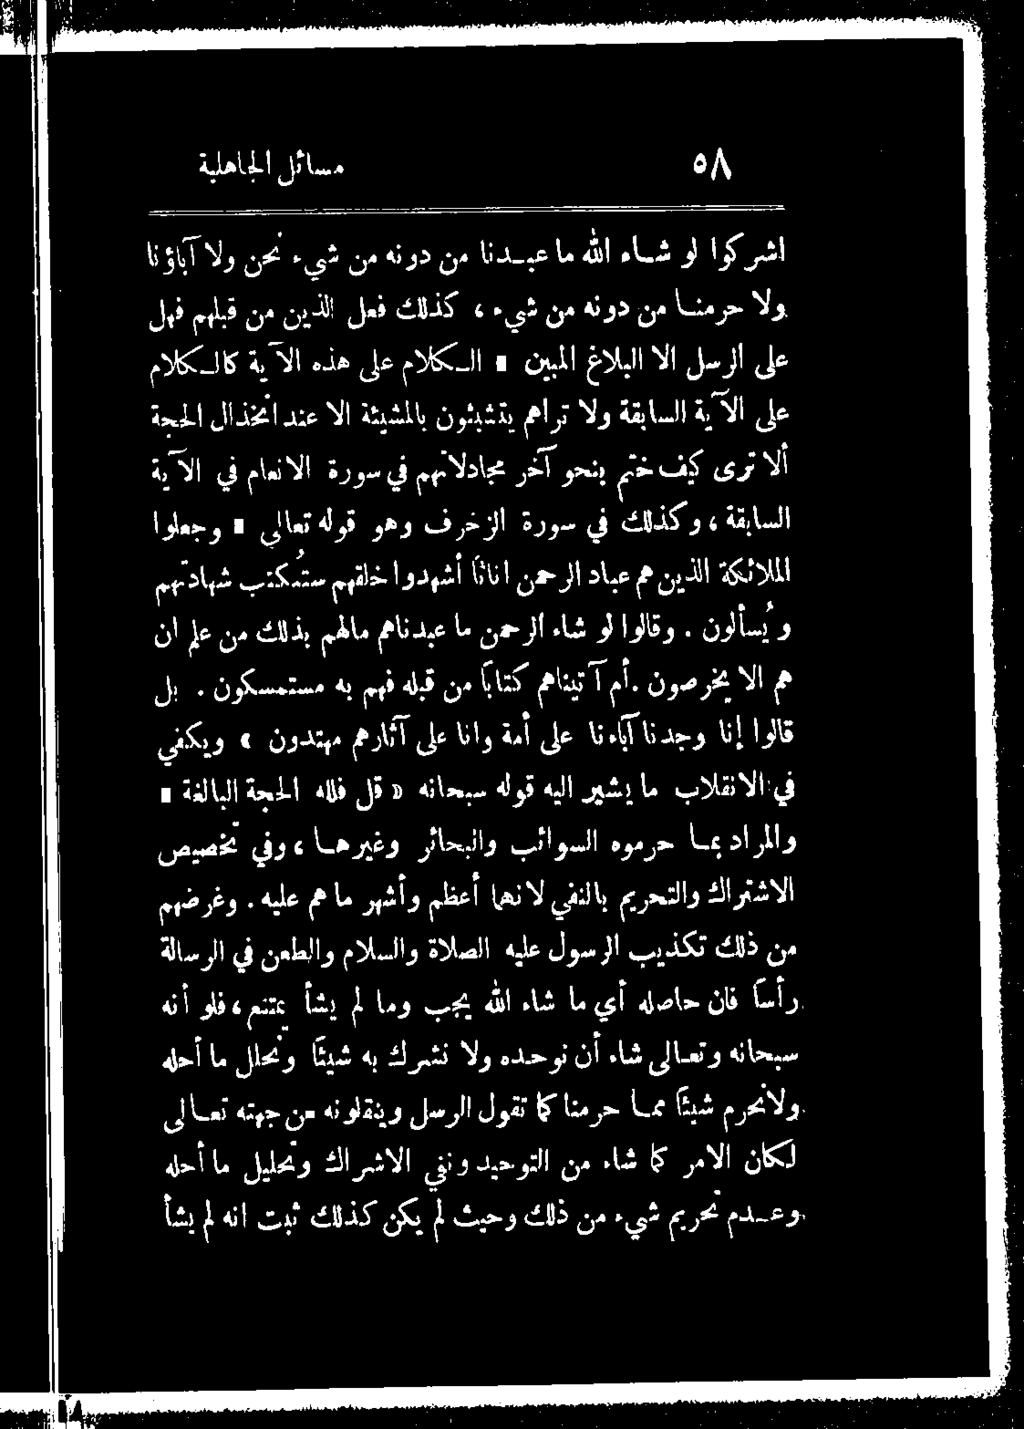 ٥٨ مسائل الجاهلية
اشركوا لو شاء الله ما عبدنا من دونه من شيء نحن ولا آباؤنا
ولا حرمنا من دونه من شيء ، كذلك فعل الذين من قبلهم فهل
على الرسل الا البلاغ المبين » الكلام على هذه الآية كالكلام
على الآية السابقة ولا تراهم يتشبثون بالمشيئة الا عند انخذال الحجة
ألا ترى كيف ختم بنحو آخر مجادلاتهم في سورة الانعام في الآية
السابقة ، وكذلك في سورة الزخرف وهو قوله تعالى « وجعلوا
الملائكة الذين هم عباد الرحمن اناثاً أشهدوا خلقهم ستُكتب شهادتهم
ويُسألون . وقالوا لو شاء الرحمن ما عبدناهم مالهم بذلك من علم ان
هم الا يخرصون . أم آتيناهم كتاباً من قبله فهم به مستمسكون . بل
قالوا إنا وجدنا آباءنا على أمة وانا على آثارهم مهتدون » ويكفي
في الانقلاب ما يشير اليه قوله سبحانه « قل فلله الحجة البالغة »
والمراد بما حرموه السوائب والبحائر وغيرها ، وفي تخصيص
الاشتراك والتحريم بالنفي لانهما أعظم وأشهر ما هم عليه . وغرضهم
من ذلك تكذيب الرسول عليه الصلاة والسلام والطعن في الرسالة
رأساً فان حاصله أي ما شاء الله يجب وما لم يشأ يمتنع ، فلو أنه
سبحانه وتعالى شاء أن نوحده ولا نشرك به شيئاً ونحلل ما أحله
ولانحرم شيئاً مما حرمنا كما تقول الرسل وينقلونه من جهته تعالى
لكان الامر كما شاء من التوحيد ونفي الاشراك وتحليل ما أحله
وعدم تحريم شيء من ذلك وحيث لم يكن كذلك ثبت انه لم يشأ